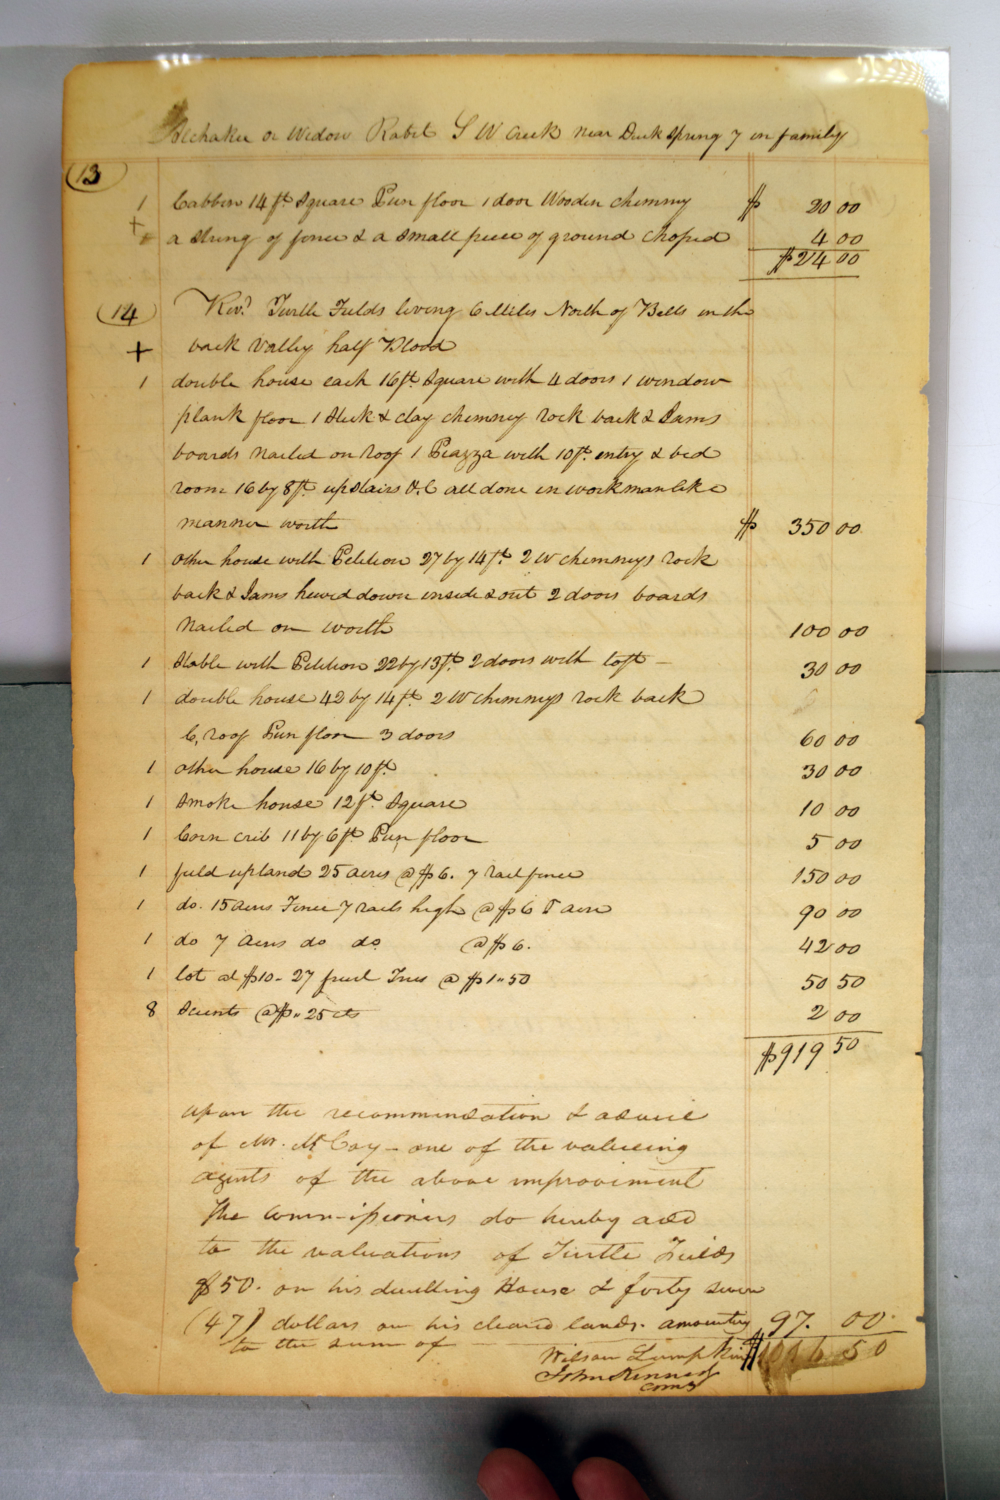 Alchaka or Widow Rabit S W Creek near Duck Spring 7 in family
13
1 Cabben 14 ft Square Pun floor 1 door Wooden chimny $ 20 00
+ a string of fence & a small piece of ground choped 4 00
$24 00
14 Revd. Turtle Fields living 6 Miles North of Bells in the
+ back Valley half Blood
1 double house each 16 ft Square with 4 doors 1 window
plank floor 1 Stick & clay chimney rock back & Jams
boards nailed on roof 1 Piazza with 10 ft. entry & bed
room 16 by 8 ft. upstairs &.C all done in workmanlike
manner worth $ 350 00
1 other house with Petition 27 by 14 ft. 2 W chimneys rock
back & Jams hewed down inside & out 2 doors boards
Nailed on worth 100 00
1 Stable with Petition 22 by 13 ft. 2 doors with loft – 30 00
1 double house 42 by 14 ft. 2 W chimneys rock back
C, roof Pun floor 3 doors 60 00
1 other house 16 by 10 ft. 30 00
1 Smoke house 12 ft. Square 10 00
1 Corn crib 11 by 6 ft. Pun floor 5 00
1 field upland 25 acres @ $6. 7 rail fence 150 00
1 do. 15 acres Fence 7 rails high @ $6 P acre 90 00
1 do 7 Acres do do @ $6. 42 00
1 lot at $10 – 27 fruit Trees @ $1"50 50 50
8 @ $"25 cts 2 00
$919 50
upon the recommendation & advice
of Mr. McCoy – one of the valueing
agents of the above improviment
the Commissioners do hereby add
to the valuations of Turtle Fields
$50. on his dwelling House & forty seven
(47) dollars on his cleard lands. amounting 97. 00
to the sum of $1016 50
Wilson Lumpkin
John Kennedy
Coms